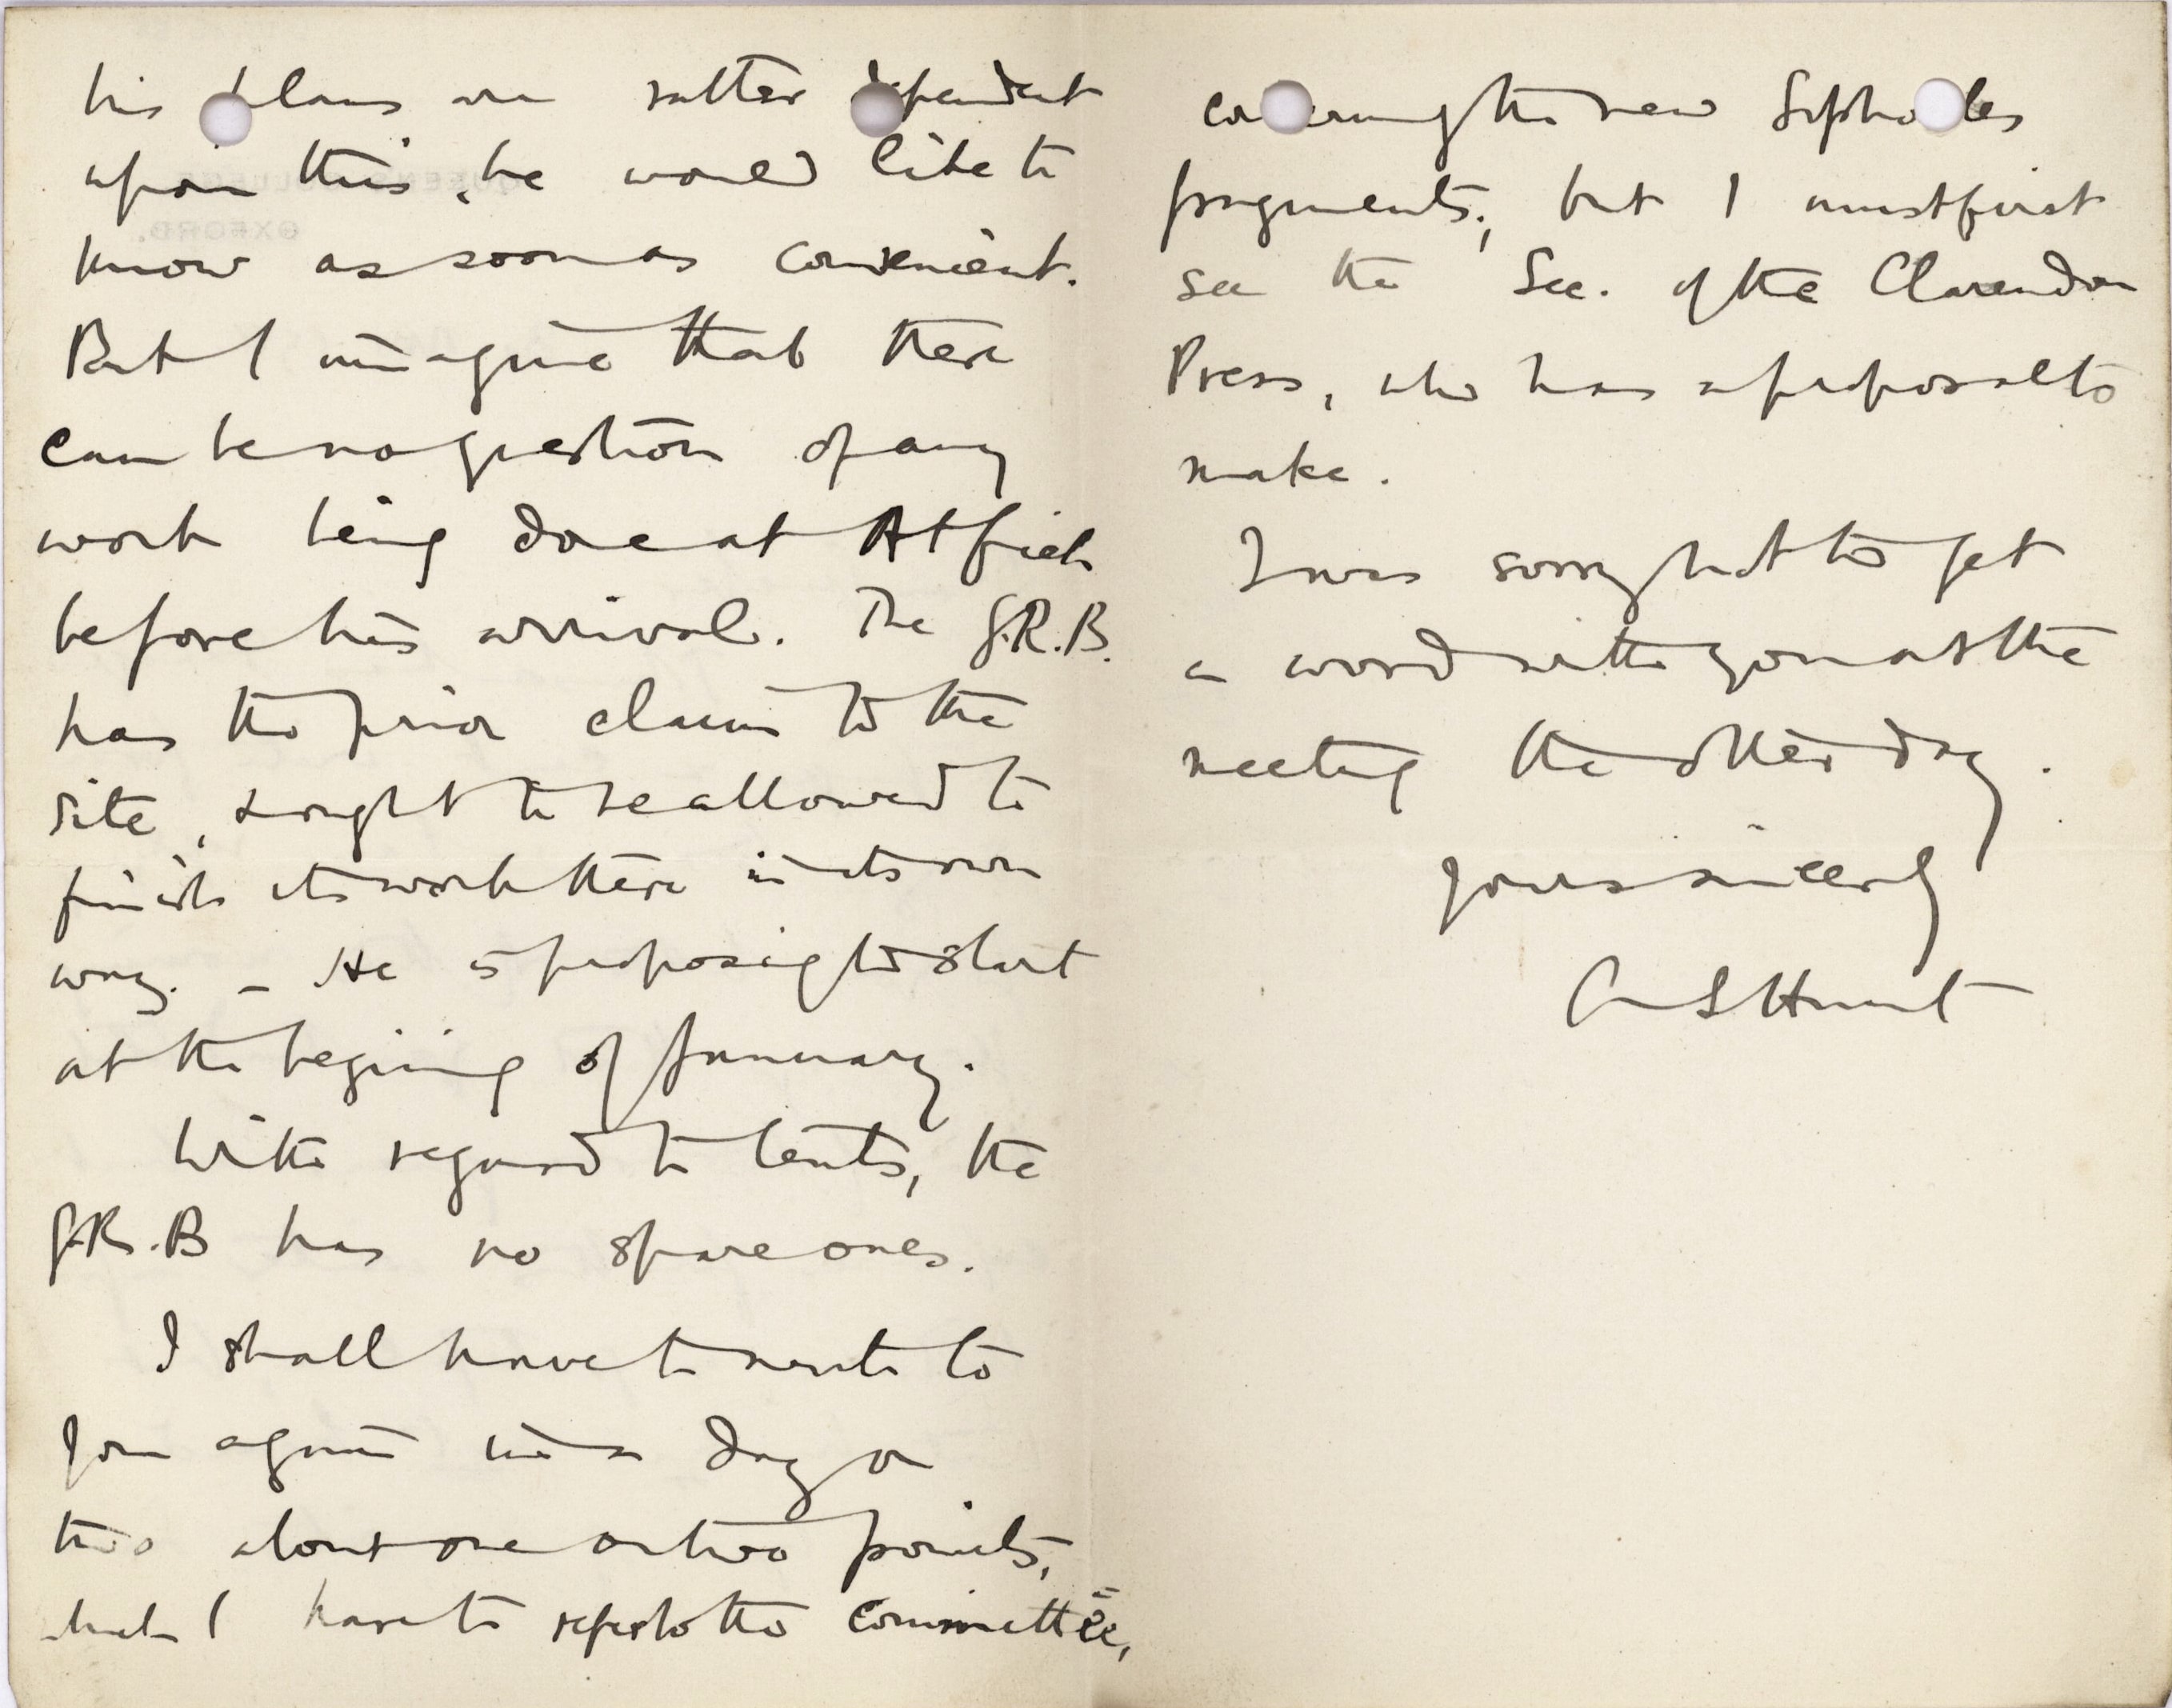 his plans are rather dependent
upon this, he would like to
know as soon as convenient.
But I imagine that there
can be no question of any
work being done at Atfieh
before his arrival. The G.R.B.
has the prior claim to the
site, & ought to be allowed to
finish its work there in its own
way. – He is proposing to start
at the begining of January.
With regard to tents, the
G.R.B has no spare ones.
I shall have to write to
you again in a day or
two about one or two points,
which I have to refer to the Committee,
concerning the new Sophocles
fragments; but I must first
see the Sec. of the Clarendon
Press, who has a proposal to
make.
I was sorry not to get
a word with you at the
meeting the other day.
Yours sincerely
A S Hunt
QUEEN'S COLLEGE
OXFORD.